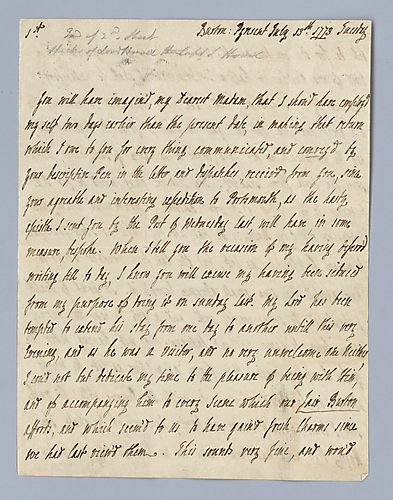 1st Burton Pynsent July 13th 1773 Tuesday
End of 2d Sheet
You will have imagin'd, my Dearest Madam, that I shou'd have employ'd
my self two days earlier than the present date, in making that return
which I owe to you for every thing communicated, and convey'd by
your descriptive Pen, in the letter and dispatches, receiv'd from you, since
your agreable and interesting expedition to Portsmouth, as the hasty
epistle I sent you by the Post of Wednesday last, will have in some
measure, bespoke. When I tell you the occasion of my having defer'd
writing till to day, I know you will excuse my having been seduced
from my purpose of doing it on sunday last. My Lord has been
tempted to extend his stay from one day to another untill this very
Evening, and as he was a visitor, and no very unwelcome one Neither
I cou'd not but dedicate my time to the pleasure of being with Him,
and of accompanying him to every Scene which our fair Burton
affords, and which seem'd to us, to have gain'd fresh Charms since
we had last view'd them. This sounds very fine, and wou'd